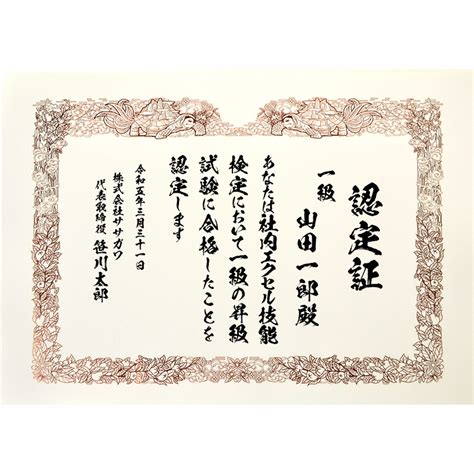 認定証
一級
山田一郎殿
あなたは社内エクセル技能
検定において一級の昇級
試験に合格したことを
認定します
令和五年三月三十一日
株式会社ササガワ
代表取締役 笹川太郎